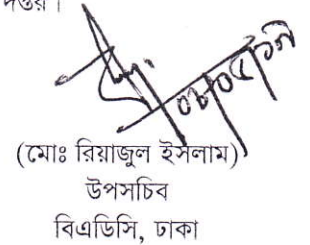 দপ্তর।
(মোঃ রিয়াজুল ইসলাম)
উপসচিব
বিএডিসি, ঢাকা